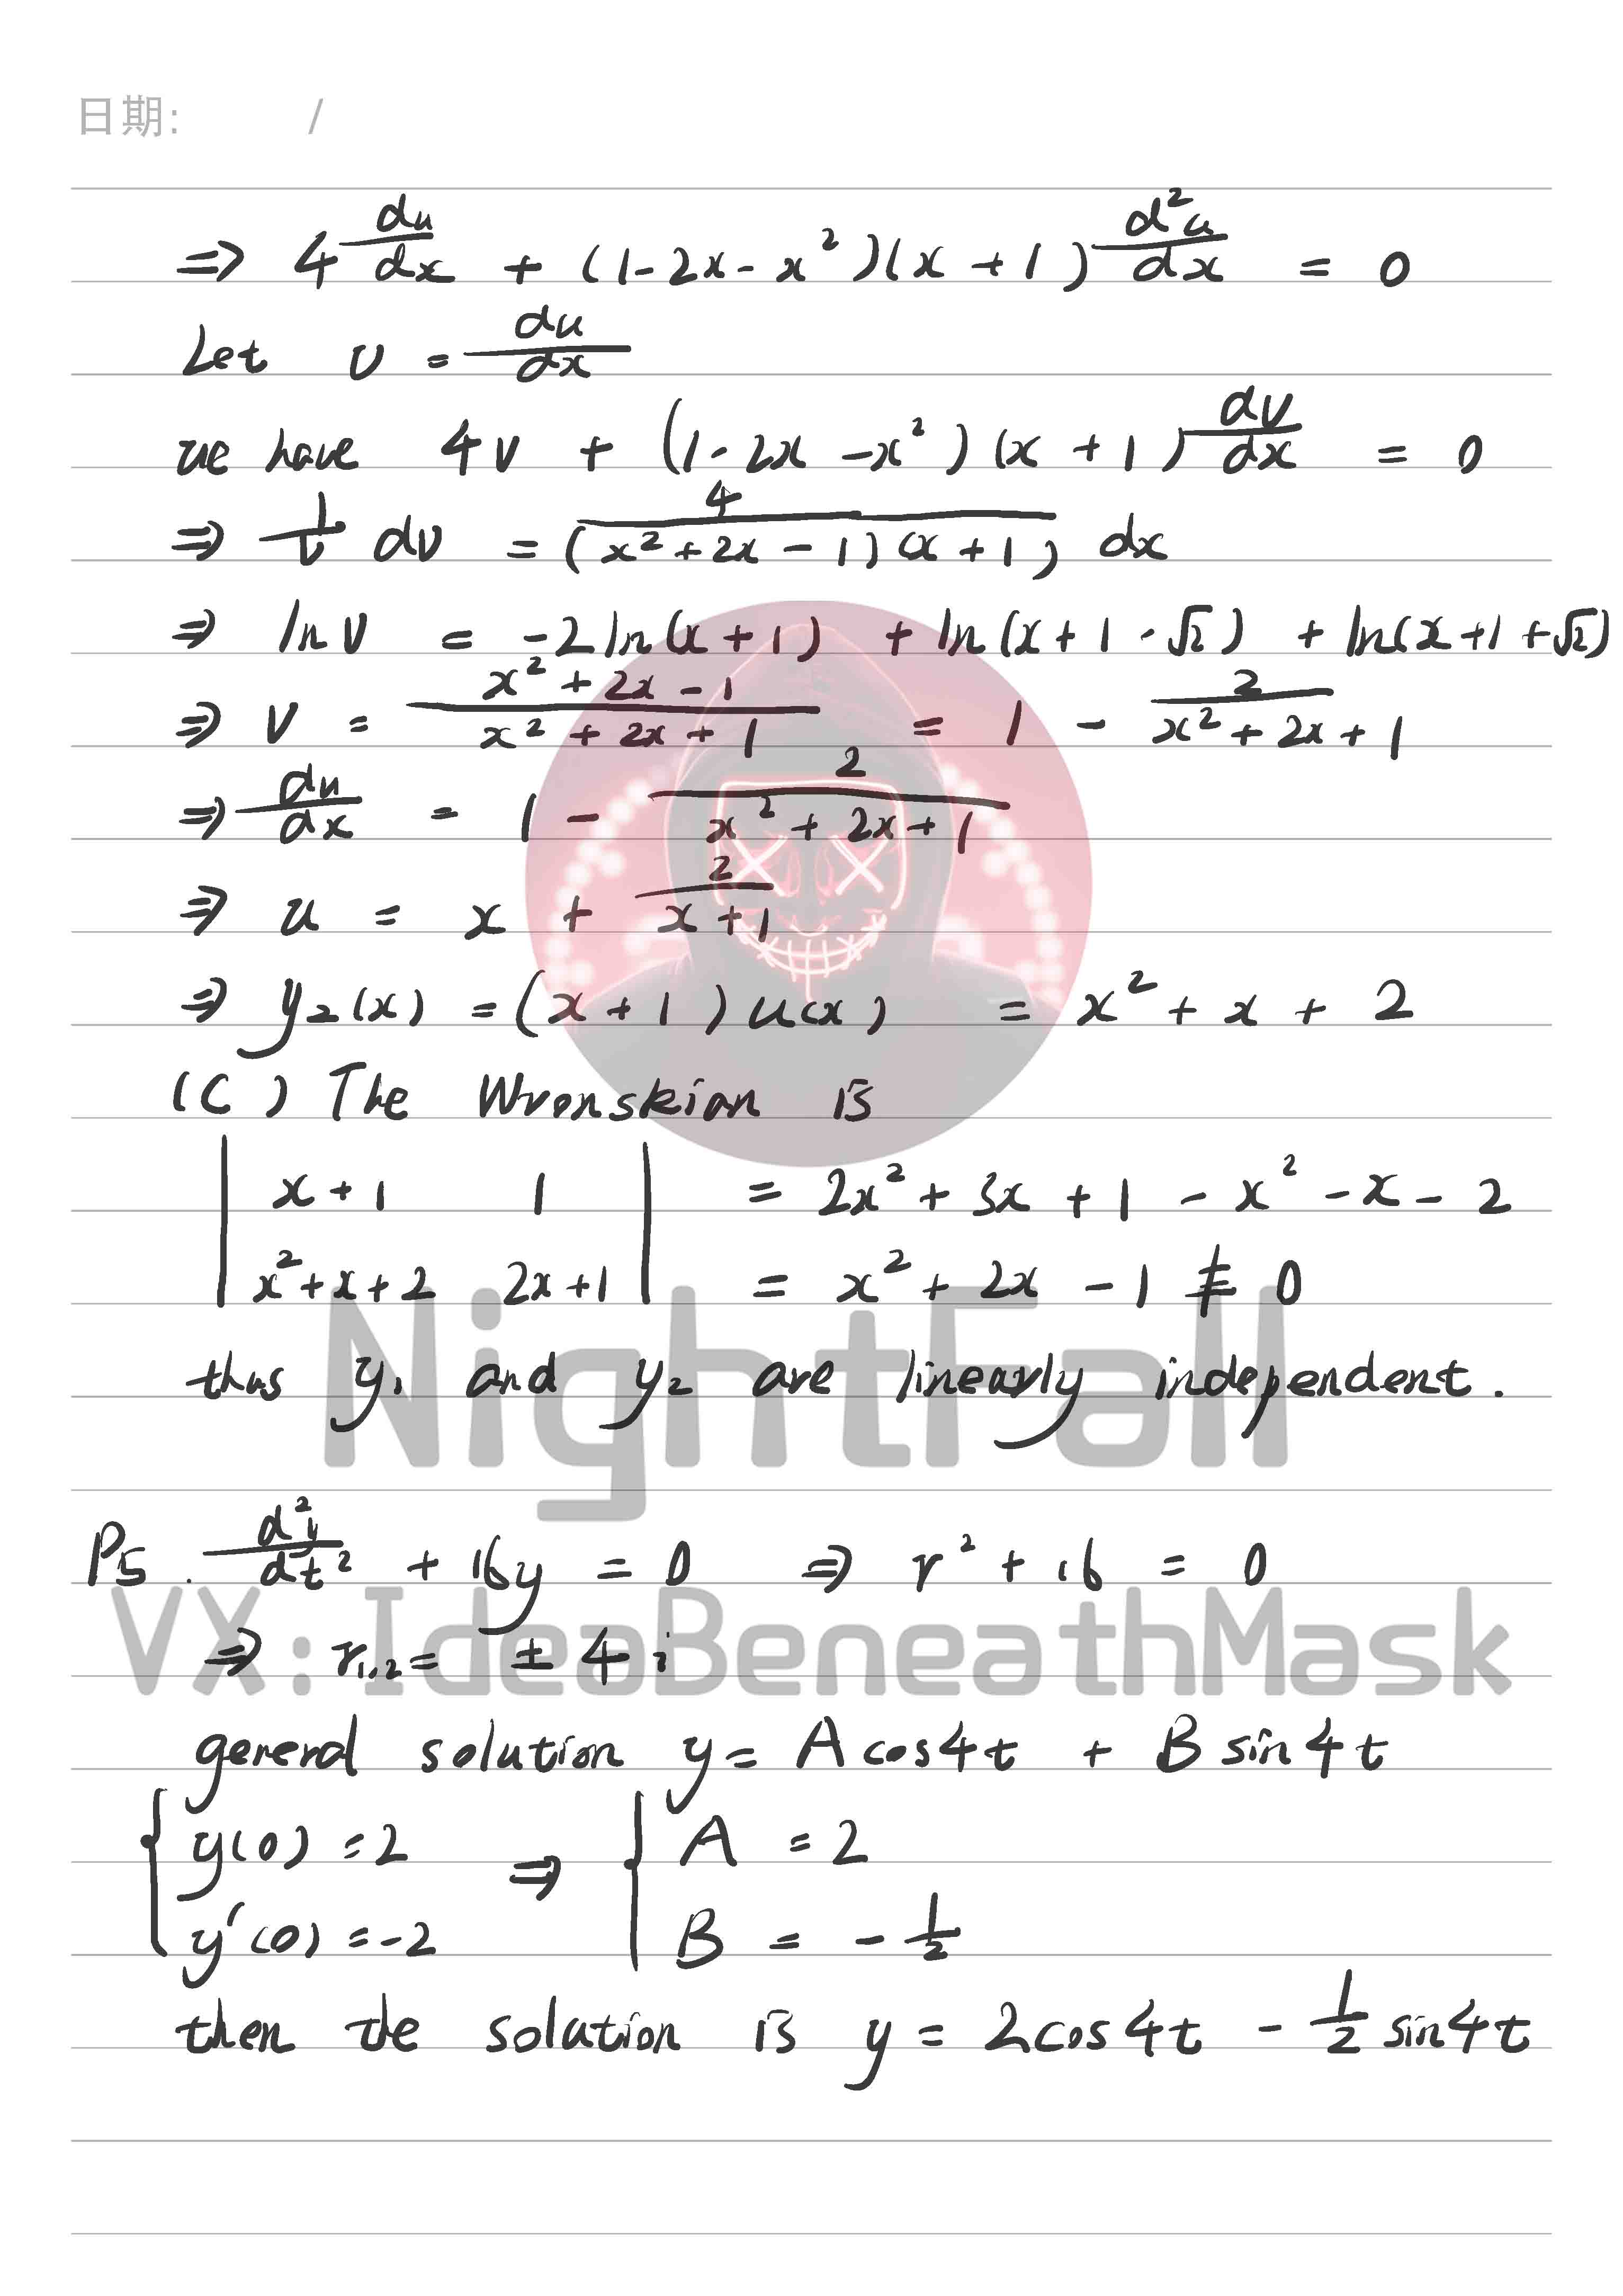 日期: /
⇒ 4 du/dx + (1-2x-x²)(x+1) d²u/dx = 0
Let v = du/dx
we have 4v + (1-2x-x²)(x+1) dv/dx = 0
⇒ 1/v dv = 4/((x²+2x-1)(x+1)) dx
⇒ ln v = -2ln(x+1) + ln(x+1-√2) + ln(x+1+√2)
⇒ v = (x²+2x-1)/(x²+2x+1) = 1 - 2/(x²+2x+1)
⇒ du/dx = 1 - 2/(x²+2x+1)
⇒ u = x + 2/(x+1)
⇒ y₂(x) = (x+1)u(x) = x²+x+2
(C) The Wronskian is
| x+1 1 | = 2x²+3x+1-x²-x-2
| x²+x+2 2x+1 | = x²+2x-1 ≢ 0
NightFall
thus y₁ and y₂ are linearly independent.
P5. d²y/dt² + 16y = 0 ⇒ r²+16 = 0
VX: IdeaBeneathMask
⇒ r₁,₂ = ±4i
general solution y = A cos4t + B sin4t
{ y(0) = 2 ⇒ { A = 2
y'(0) = -2 B = -1/2
then the solution is y = 2cos4t - 1/2 sin4t